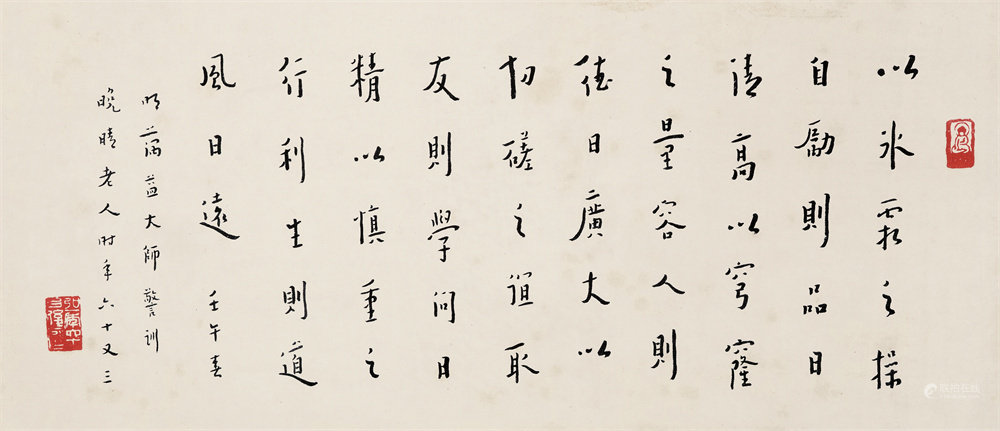 以冰霜之操
自勵則品日
清高以穹窿
之量容人則
德日廣大以
切磋之誼取
友則學問日
精以慎重之
行利生則道
風日遠 壬午春
明蕅益大師警訓
晚晴老人时年六十又三
联拍在线